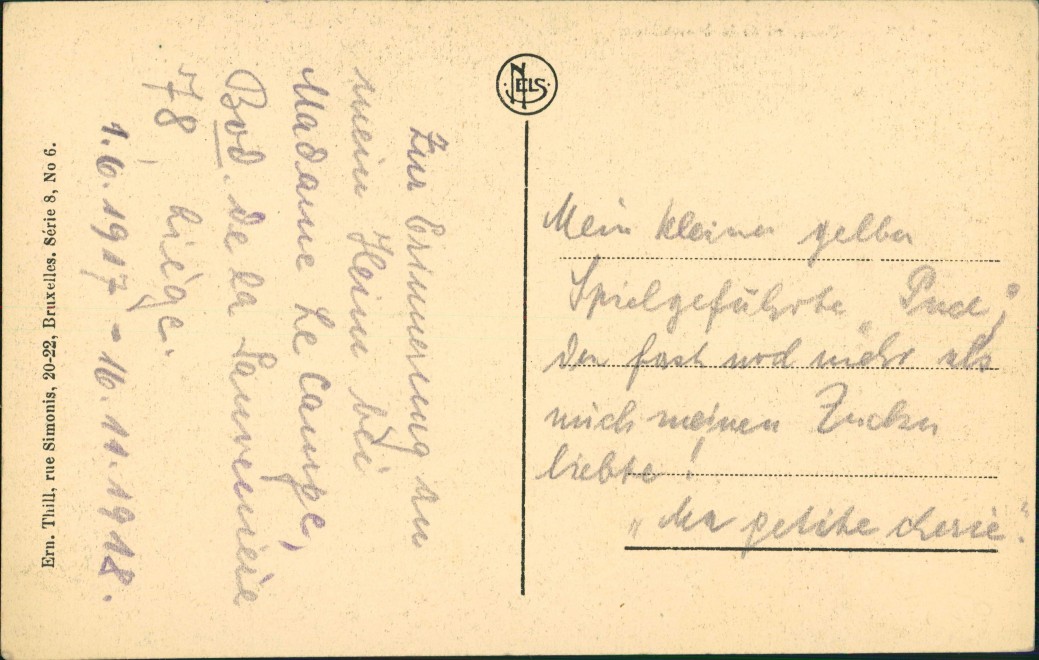 Zur Erinnerung an
mein Heim bei
Madame Le Campe,
Bod. de la Sauvenière
78, Liège.
1.6.1917 - 16.11.1918.
Ern. Thill, rue Simonis, 20-22, Bruxelles. Série 8, No 6.
NELS
Mein kleiner gelber
Spielgefährte „Puck“,
der fast noch mehr als
mich meinen Zucker
liebte!
„Ma petite cherie“.